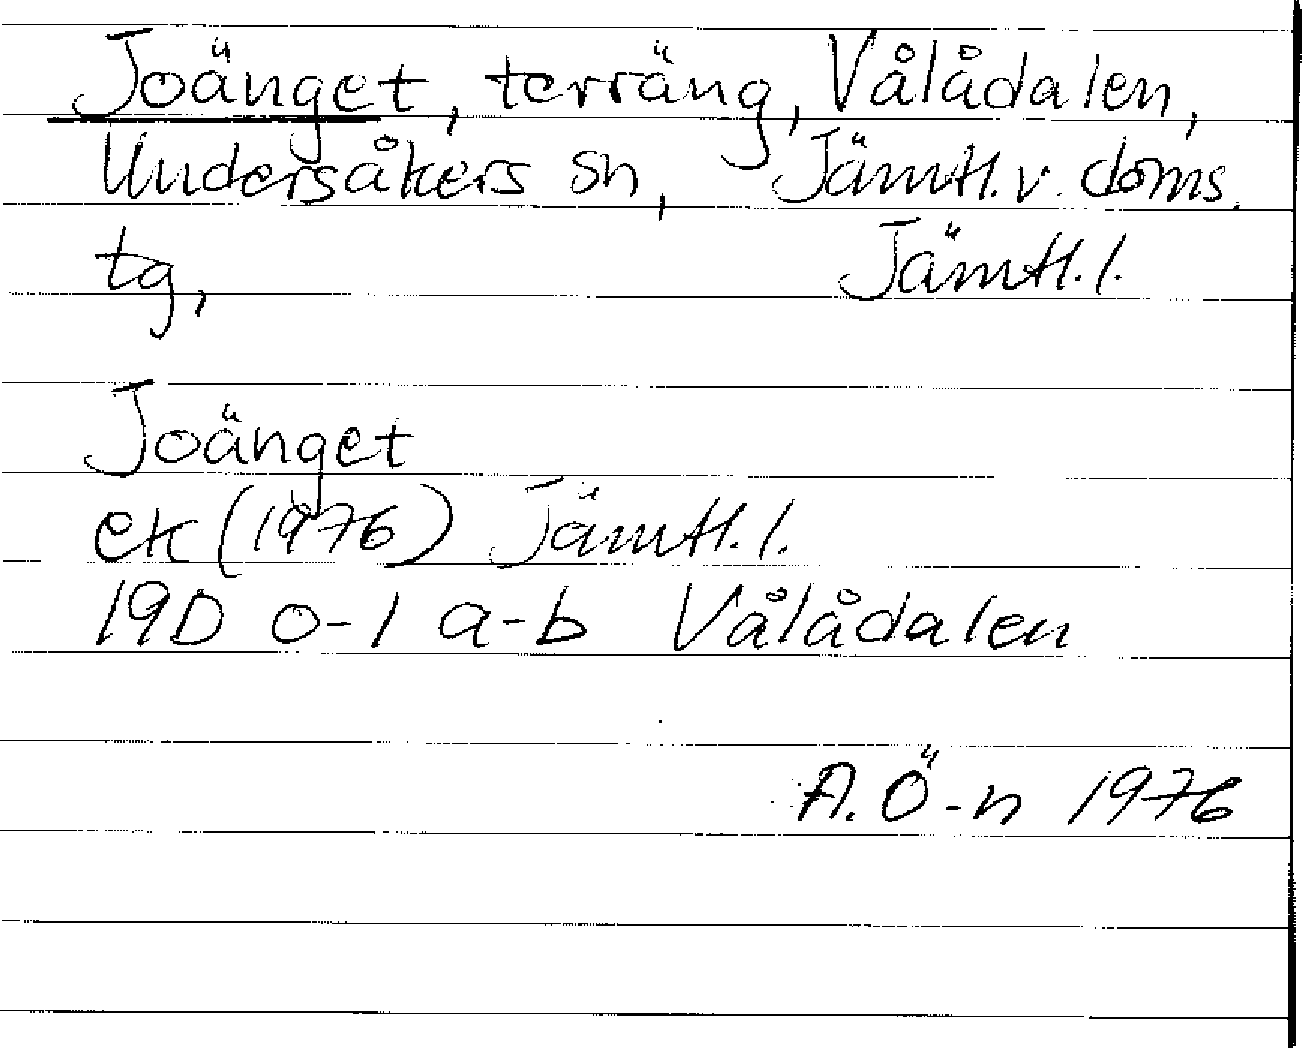 Joänget, terräng, Vålådalen,
Undersåkers sn, Jämtl. v. doms.
tg, Jämtl. l.
Joänget
ek (1976) Jämtl. l.
19D 0-1 a-b Vålådalen
A. Ö-n 1976